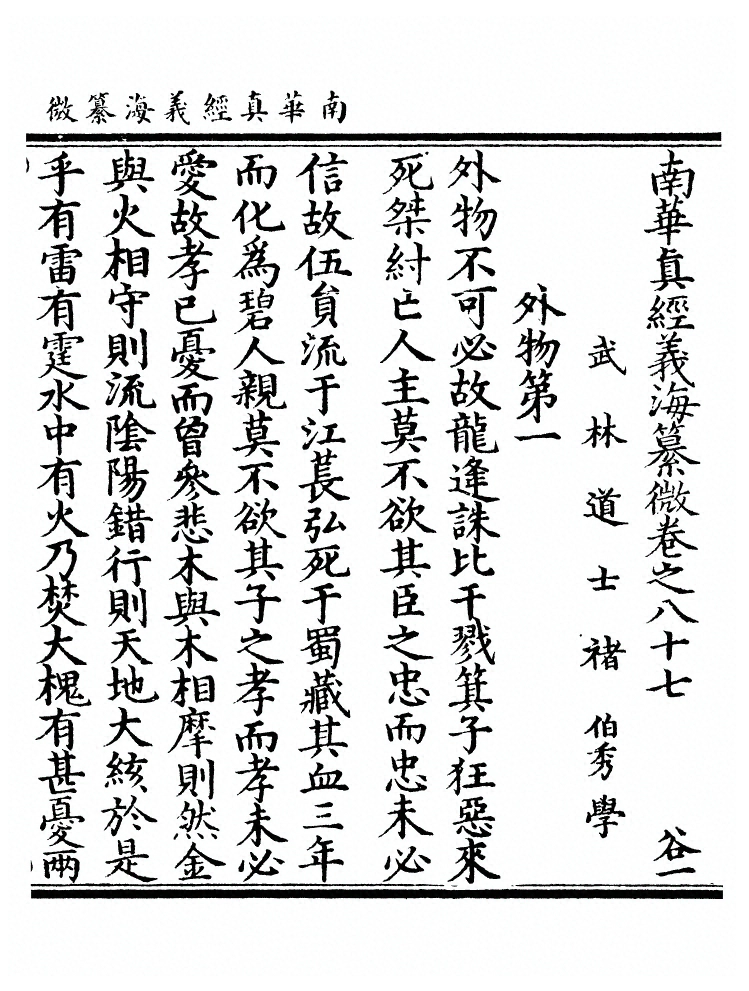 南華真經義海纂微
南華眞經義海纂微卷之八十七 谷一
武林道士褚伯秀學
外物第一
外物不可必故龍逄誅比干戮箕子狂惡來
死桀紂亡人主莫不欲其臣之忠而忠未必
信故伍貟流于江萇弘死于蜀藏其血三年
而化爲碧人親莫不欲其子之孝而孝未必
愛故孝已憂而曾參悲木與木相摩則然金
與火相守則流陰陽錯行則天地大絯於是
乎有雷有霆水中有火乃焚大槐有甚憂兩